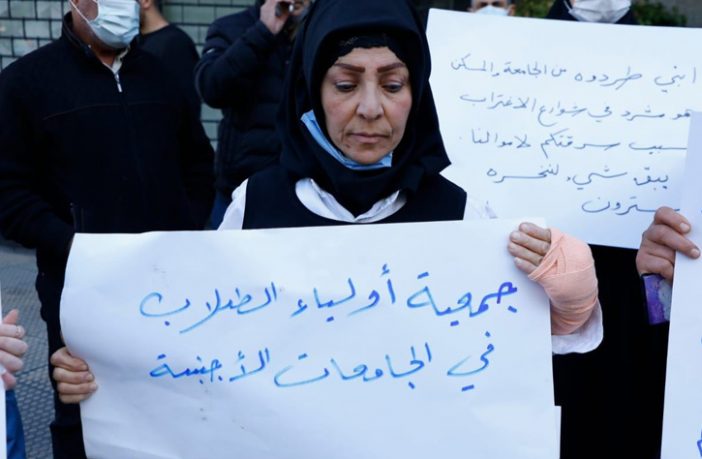 ابني طردوه من الجامعة والمسكن
هو مشرد في شوارع الاغتراب
بسبب سرقتكم لاموالنا
يبق شيء لنخسره
جمعية أولياء الطلاب
في الجامعات الأجنبية